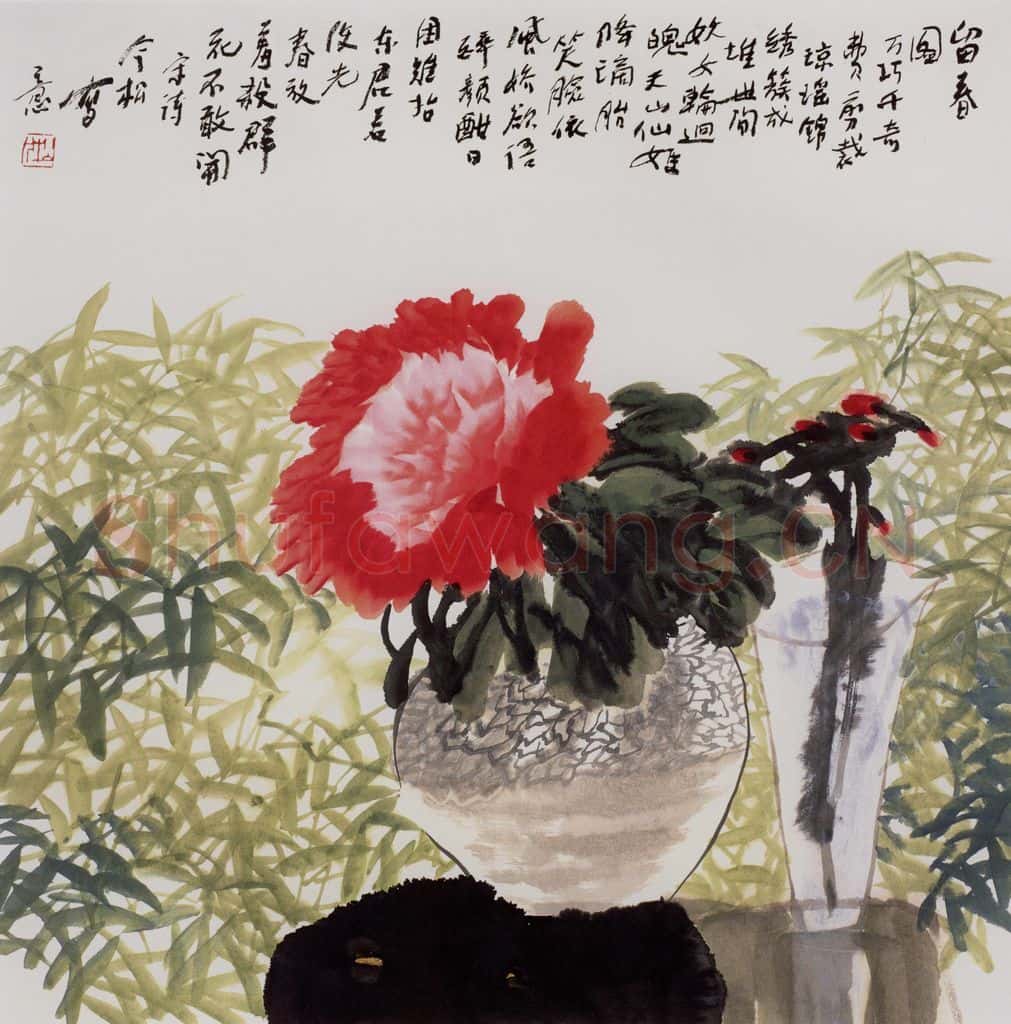 留春
图
万巧千奇
费剪裁
琼瑶锦
绣簇成
堆世间
妖女輪迴
魄天山仙姬
降谪胎
笑脸依
风娇欲语
醉颜酣日
困难抬
东君若
先
春放
羞殺群
花不敢開
宋诗
今松
寫
意
Shufawang.CN